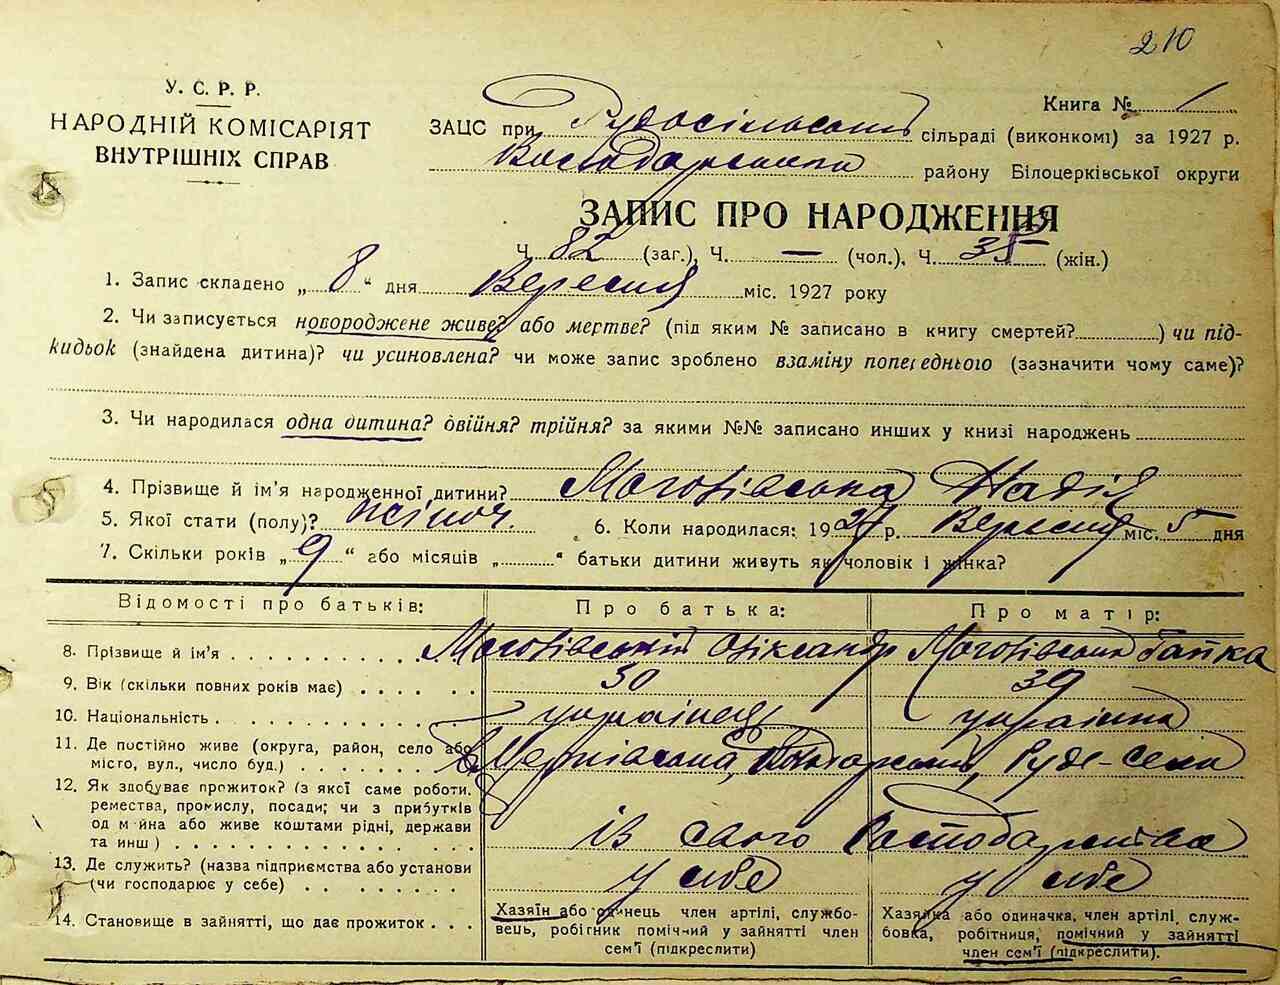 210
У. С. Р. Р.
НАРОДНІЙ КОМІСАРІЯТ
ВНУТРІШНІХ СПРАВ
Книга № 1
ЗАЦС при Рудосільській сільраді (виконкомі) за 1927 р.
Володарського району Білоцерківської округи
ЗАПИС ПРО НАРОДЖЕННЯ
Ч. 82 (заг.), Ч. — (чол.), Ч. 35 (жін.)
1. Запис складено „ 8 “ дня Вересня міс. 1927 року
2. Чи записується новороджене живе? або мертве? (під яким № записано в книгу смертей? ) чи під-
кидьок (знайдена дитина)? чи усиновлена? чи може запис зроблено взаміну попереднього (зазначити чому саме)?
3. Чи народилася одна дитина? двійня? трійня? за якими №№ записано инших у книзі народжень
4. Прізвище й ім'я народженної дитини? Надія
5. Якої стати (полу)? жіноч. 6. Коли народилася: 1927 р. Вересня міс. 5 дня
7. Скільки років „ 9 “ або місяців „ “ батьки дитини живуть як чоловік і жінка?
Відомості про батьків: Про батька: Про матір:
8. Прізвище й ім'я Олександр
9. Вік (скільки повних років має) 30 30
10. Національність українець українка
11. Де постійно живе (округа, район, село або Руде-Село
місто, вул., число буд.)
12. Як здобуває прожиток? (з якої саме роботи,
ремества, промислу, посади; чи з прибутків
од майна або живе коштами рідні, держави
та инш) із свого господарства
13. Де служить? (назва підприємства або установи
(чи господарює у себе) у себе у себе
14. Становище в зайнятті, що дає прожиток
Хазяїн або одинець член артілі, службо-
вець, робітник помічний у зайнятті член
сем'ї (підкреслити)
Хазяйка або одиначка, член артілі, служ-
бовка, робітниця, помічний у зайнятті
член сем'ї (підкреслити).